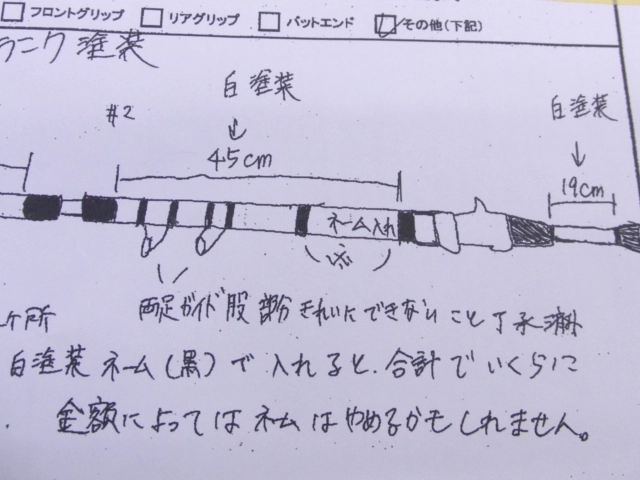 フロントグリップ リアグリップ バットエンド その他(下記)
ランク塗装
白塗装
#2
白塗装
45cm
19cm
ネーム入れ
両足ガイド股部分きれいにできないこと了承済み
ヶ所
白塗装 ネーム(黒)で入れると、合計でいくらに
金額によってはネームはやめるかもしれません。